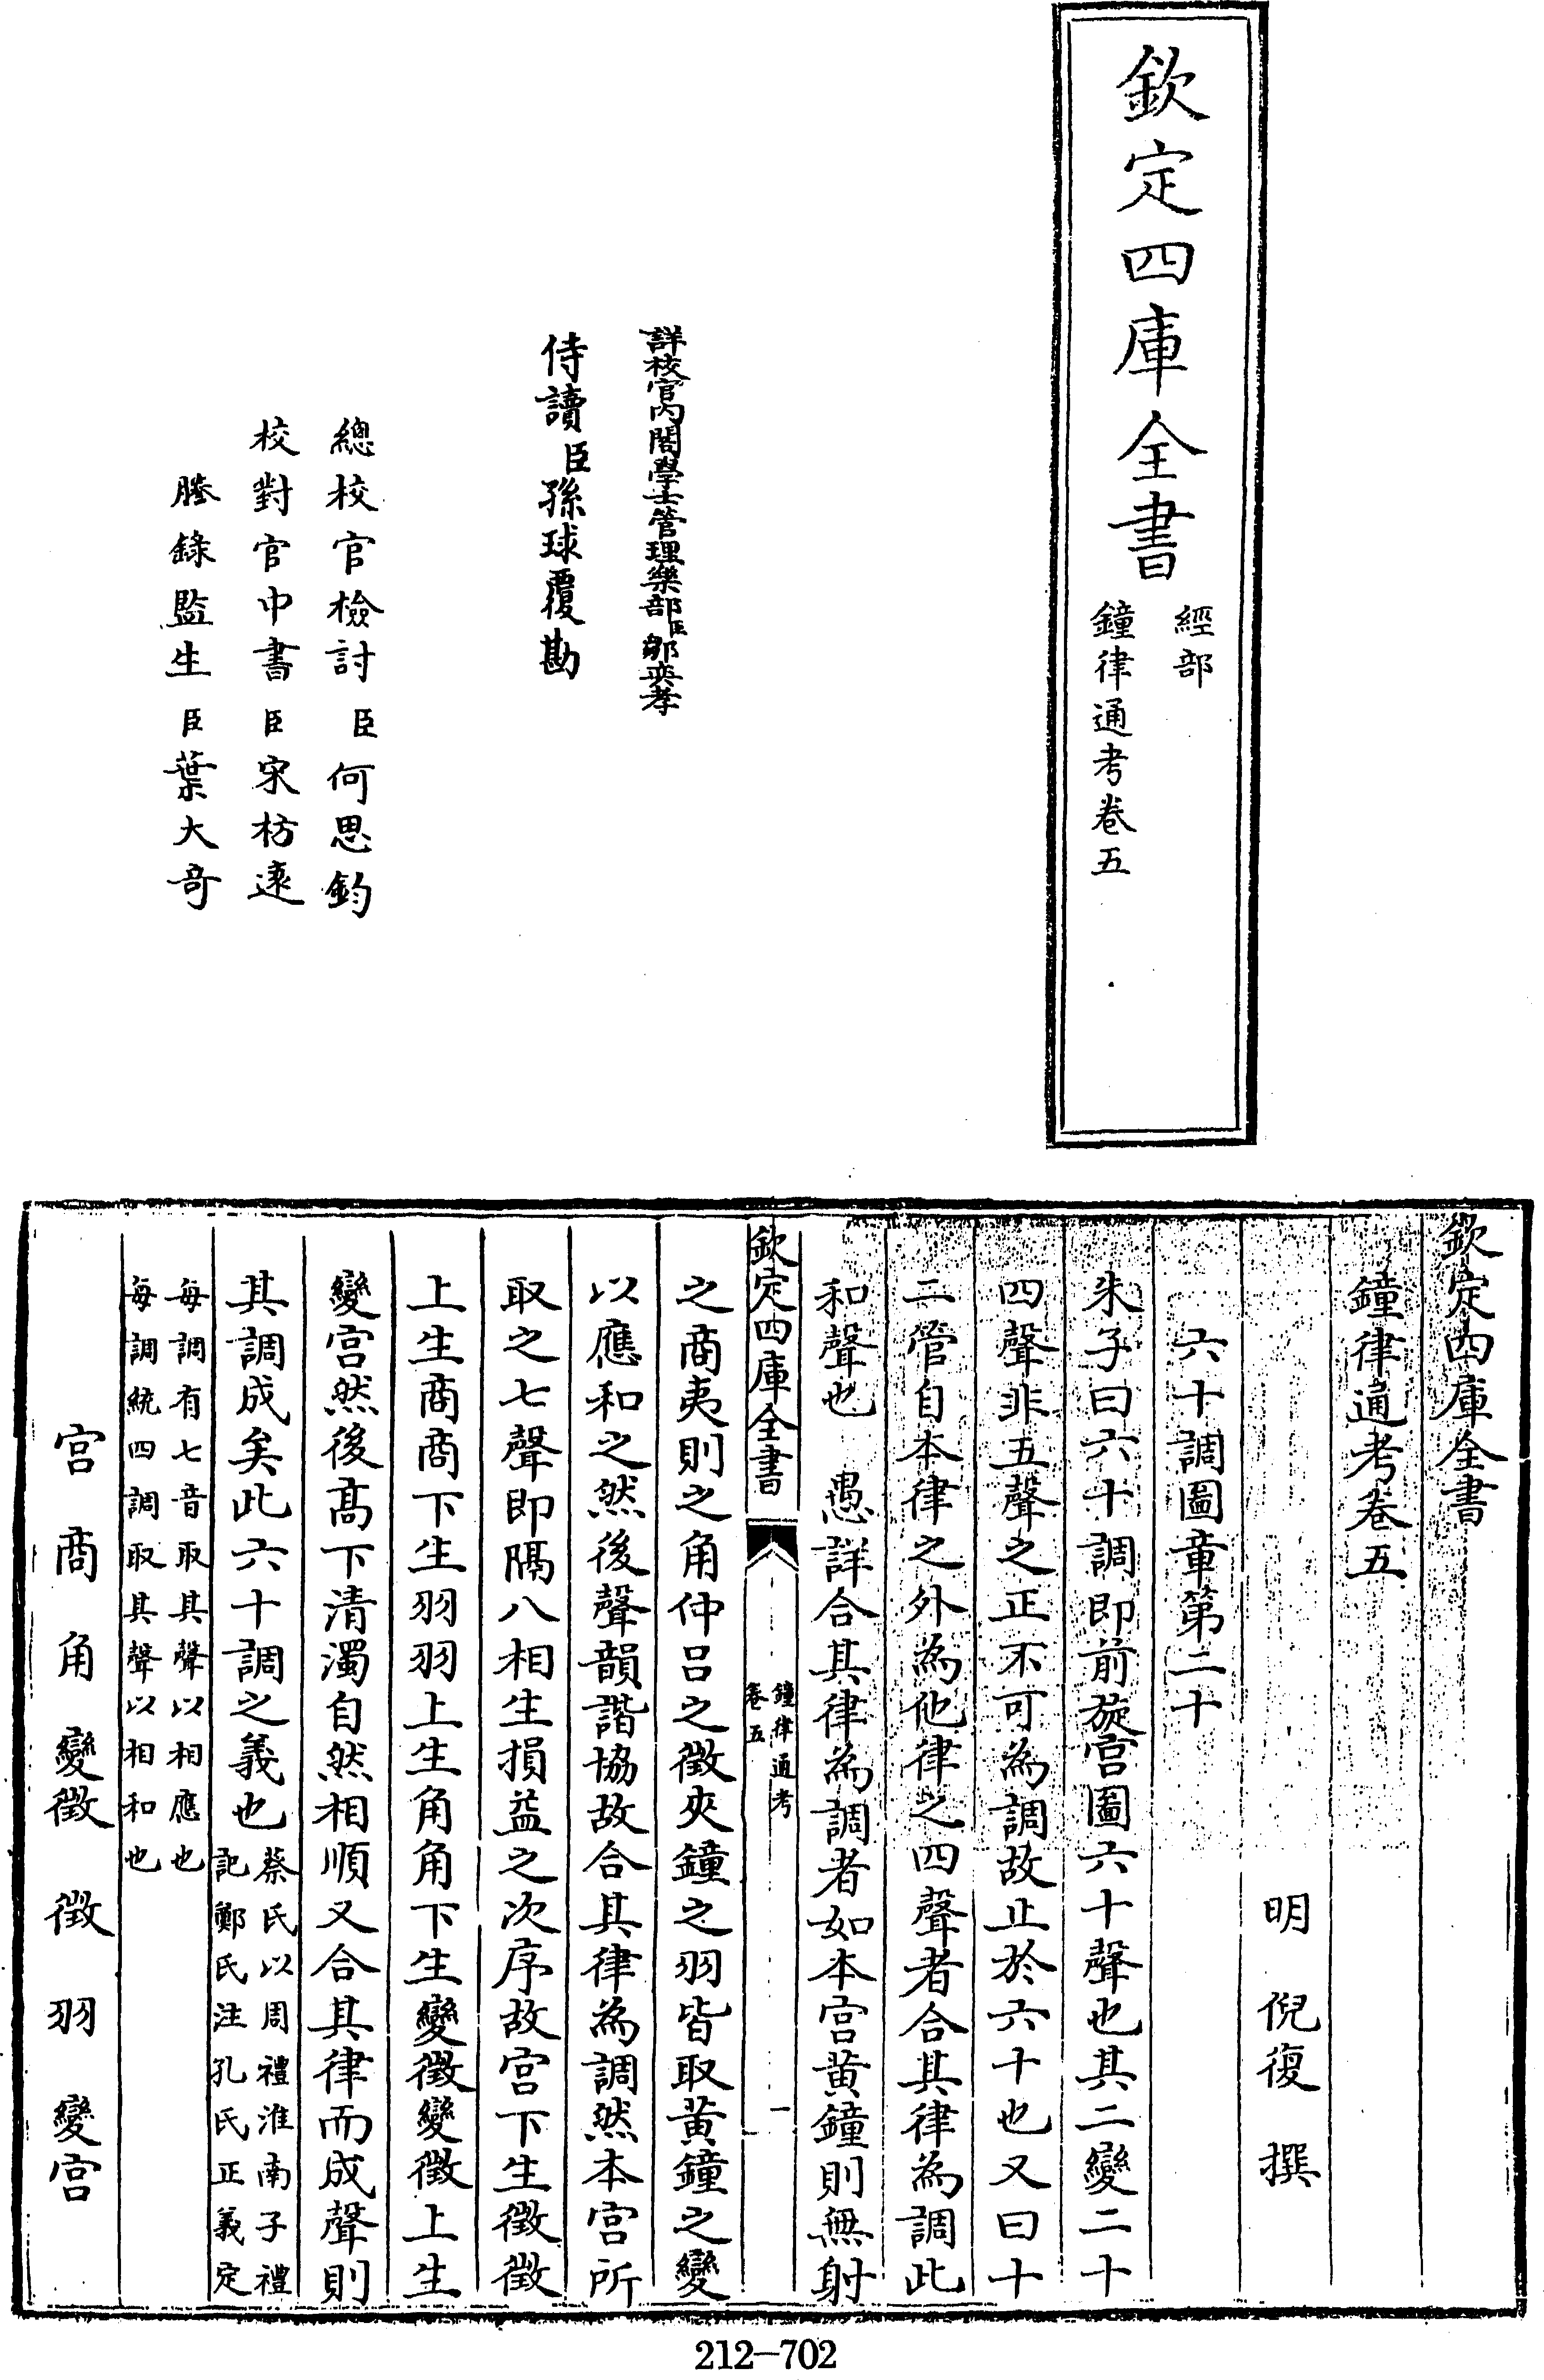 欽定四庫全書
經部
鐘律通考卷五
詳校官內閣學士管理樂部臣鄒奕孝
侍讀臣孫球覆勘
總校官檢討臣何思鈞
校對官中書臣宋枋遠
謄錄監生臣葉大奇
欽定四庫全書
鐘律通考卷五
明 倪復 撰
六十調圖章第二十
朱子曰六十調即前旋宮圖六十聲也其二變二十
四聲非五聲之正不可為調故止於六十也又曰十
二管自本律之外為他律之四聲者合其律為調此
和聲也 愚詳合其律為調者如本宮黃鐘則無射
欽定四庫全書
鐘律通考
卷五
一
之商夷則之角仲呂之徵夾鐘之羽皆取黃鐘之變
以應和之然後聲韻諧協故合其律為調然本宮所
取之七聲即隔八相生損益之次序故宮下生徵徵
上生商商下生羽羽上生角角下生變徵變徵上生
變宮然後高下清濁自然相順又合其律而成聲則
其調成矣此六十調之義也蔡氏以周禮淮南子禮
記鄭氏注孔氏正義定
每調有七音取其聲以相應也
每調統四調取其聲以相和也
宮 商 角 變徵 徵 羽 變宮
212-702